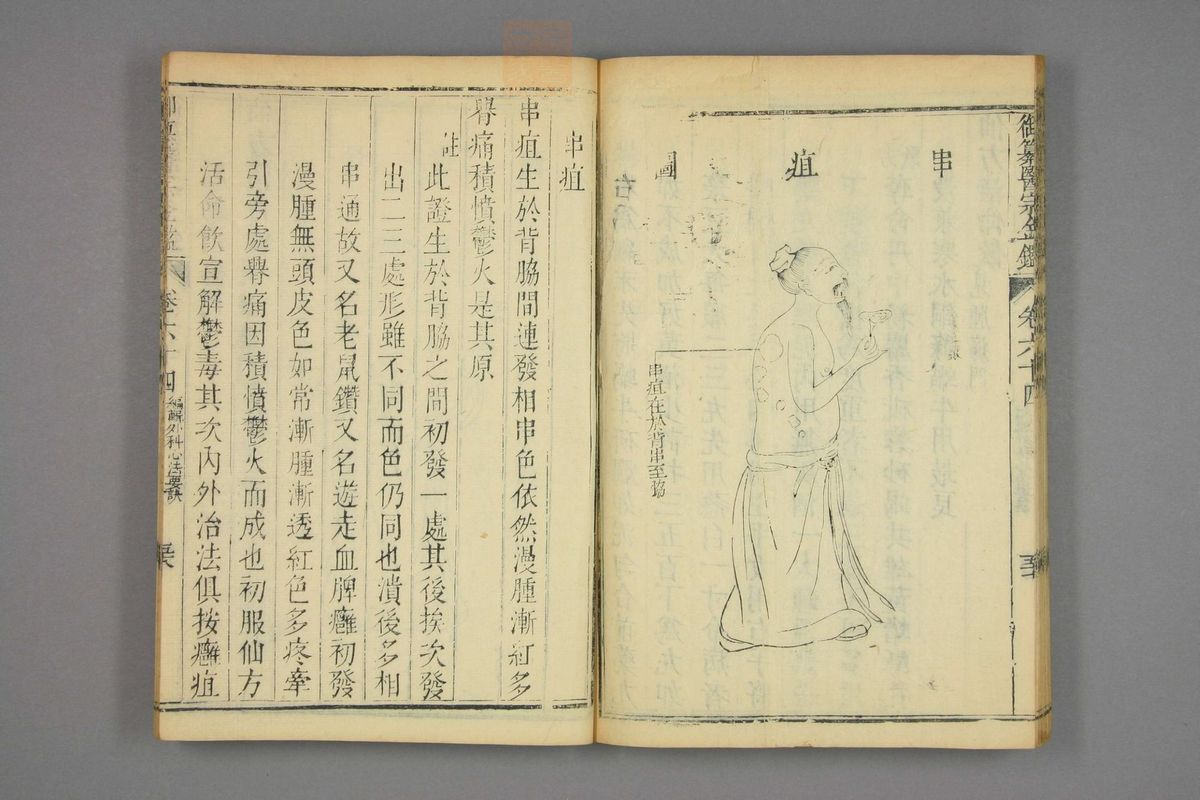 御纂醫宗金鑑 卷六十四
串疽圖
串疽在於背串至脇
串疽
串疽生於背脇間連發相串色依然漫腫漸紅多
譽痛積憤鬱火是其原
註此證生於背脇之間初發一處其後挨次發
出二三處形雖不同而色仍同也潰後多相
串通故又名老鼠鑽又名遊走血脾癰初發
漫腫無頭皮色如常漸腫漸透紅色多疼牽
引旁處譽痛因積憤鬱火而成也初服仙方
活命飲宣解鬱毒其次內外治法俱按癰疽
卷六十四 編輯外科心法要訣